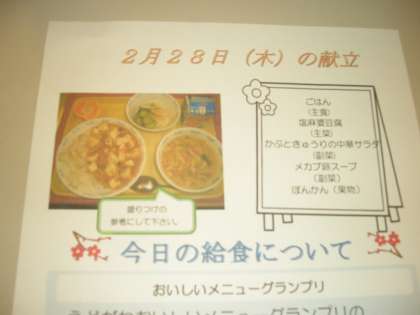 2月28日（木）の献立
ごはん
（主食）
塩麻婆豆腐
（主菜）
かぶときゅうりの中華サラダ
（副菜）
メカブ豚スープ
（副菜）
ぽんかん（果物）
盛りつけの
参考にして下さい。
今日の給食について
おいしいメニューグランプリ